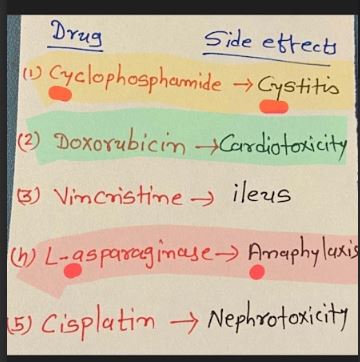 Drug Side effects
(1) Cyclophosphamide → Cystitis
(2) Doxorubicin → Cardiotoxicity
(3) Vincristine → ileus
(4) L-asparaginase → Anaphylaxis
(5) Cisplatin → Nephrotoxicity